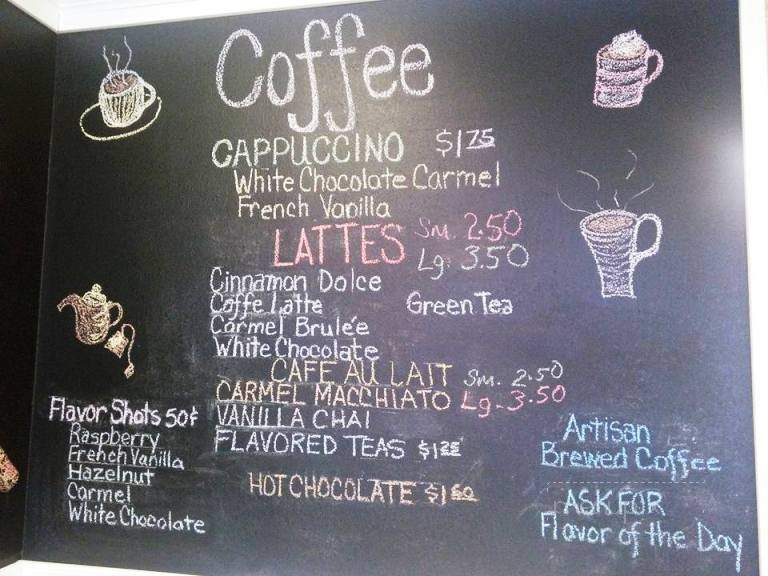 Coffee
CAPPUCCINO $1 75
White Chocolate Carmel
French Vanilla
LATTES Sm. 2.50
Lg. 3.50
Cinnamon Dolce
Caffe Latte Green Tea
Carmel Brulée
White Chocolate
CAFE AU LAIT Sm. 2.50
CARMEL MACCHIATO Lg. 3.50
VANILLA CHAI
FLAVORED TEAS $1 25
HOT CHOCOLATE $1 50
Flavor Shots 50¢
Raspberry
French Vanilla
Hazelnut
Carmel
White Chocolate
Artisan
Brewed Coffee
ASK FOR
Flavor of the Day